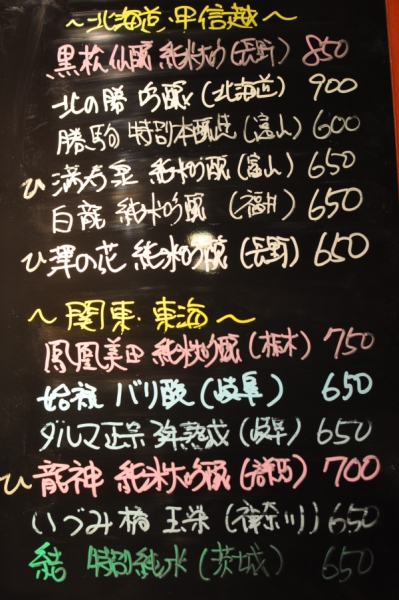 ～北海道、甲信越～
黒松仙醸 純米大吟 (長野) 850
北の勝 吟醸 (北海道) 900
勝駒 特別本醸造 (富山) 600
ひ 満寿泉 純米吟醸 (富山) 650
白龍 純米吟醸 (福井) 650
ひ 澤の花 純米吟醸 (長野) 650
～関東・東海～
鳳凰美田 純米吟醸 (栃木) 750
始禄 バリ酸 (岐阜) 650
ダルマ正宗 弥熟成 (岐阜) 650
ひ 龍神 純米大吟醸 700
いづみ橋 (神奈川) 650
結 特別純米 (茨城) 650